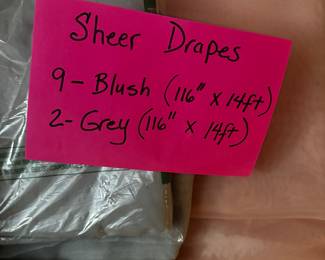 Sheer Drapes
9- Blush (116" x 14ft)
2- Grey (116" x 14ft)